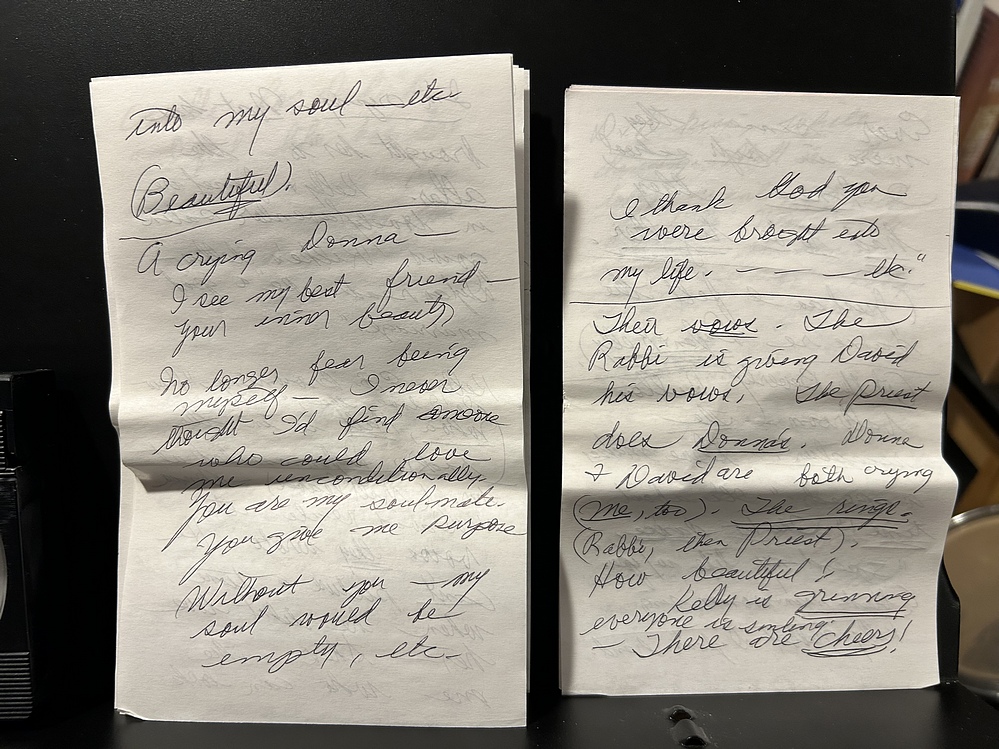 into my soul — etc.
(Beautiful).
A crying Donna —
I see my best friend —
your inner beauty
No longer fear being
myself — I never
thought I'd find someone
who could love
me unconditionally.
You are my soulmate.
You give me purpose
Without you — my
soul would be
empty, etc.
I thank God you
were brought into
my life. — — — etc."
Their vows. The
Rabbi is giving David
his vows. The priest
does Donna's. Donna
& David are both crying
(me, too). The rings.
(Rabbi, then Priest).
How beautiful!
Kelly is grinning
everyone is smiling
— There are cheers!